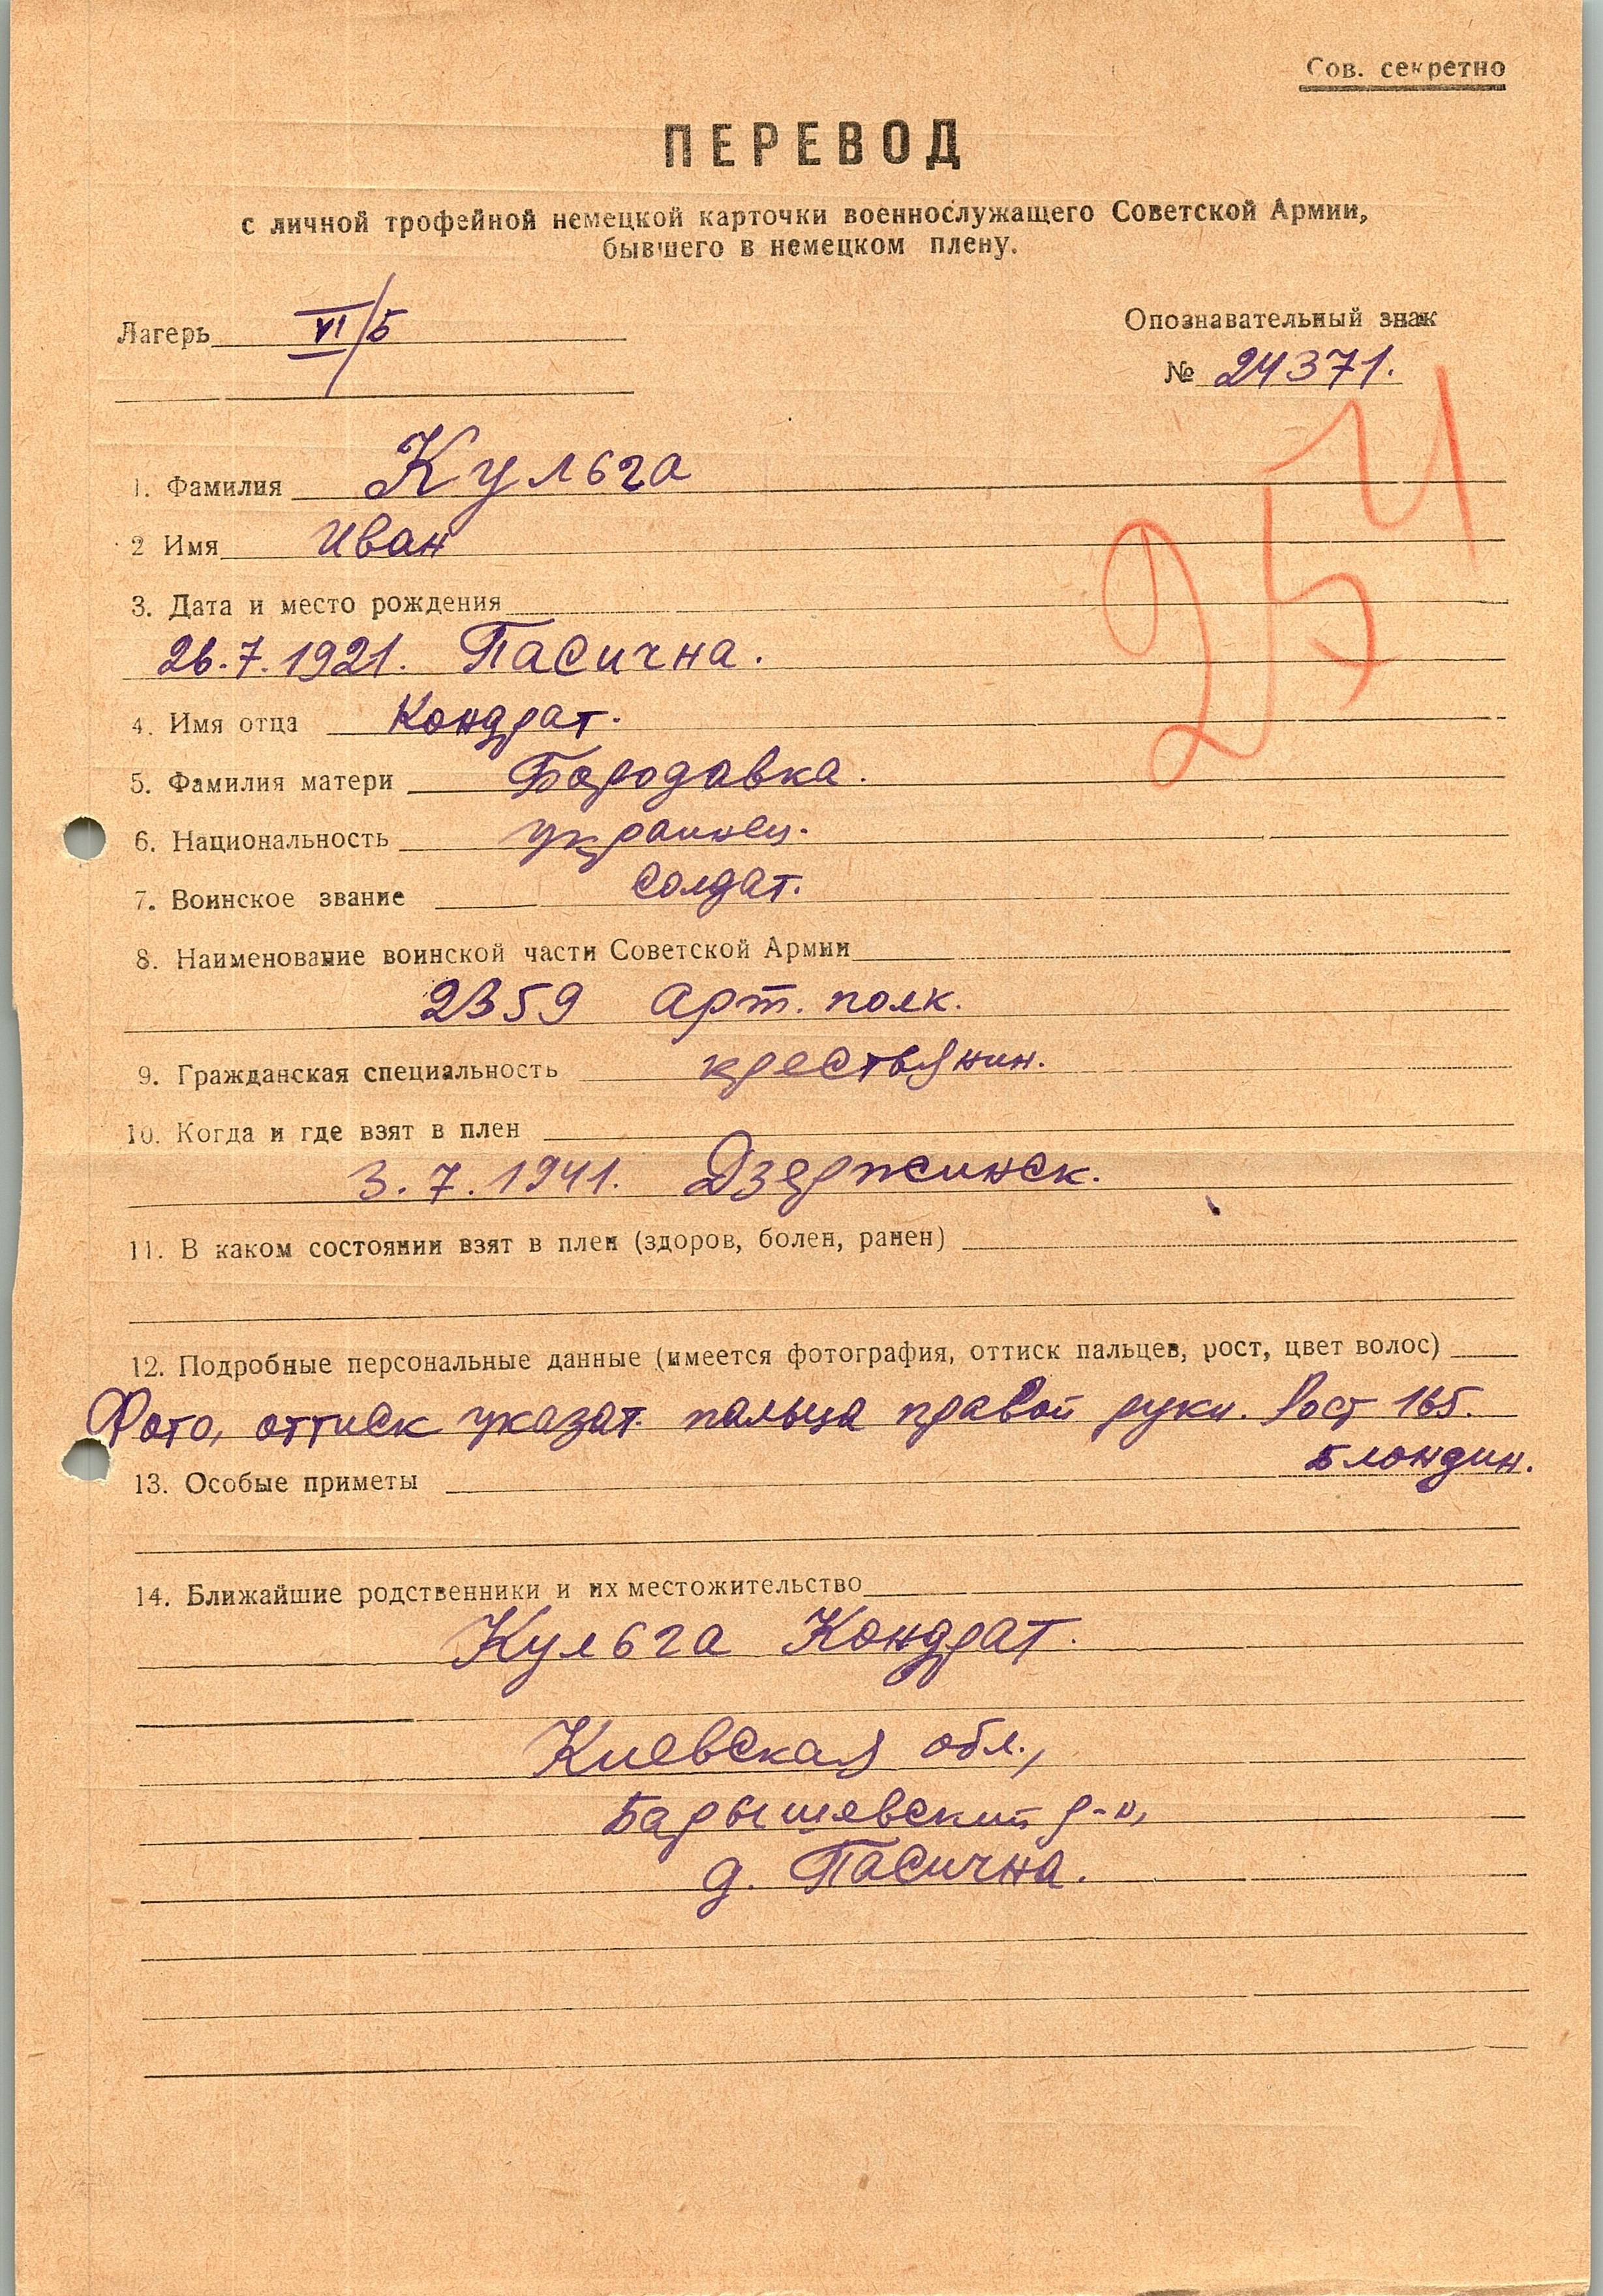 Сов. секретно
ПЕРЕВОД
с личной трофейной немецкой карточки военнослужащего Советской Армии,
бывшего в немецком плену.
Лагерь VI/Б
Опознавательный знак
№ 24371.
1. Фамилия Кульга
2 Имя Иван
3. Дата и место рождения
26.7.1921. Пасична.
4. Имя отца Кондрат.
5. Фамилия матери Бородавка.
6. Национальность украинец.
7. Воинское звание солдат.
8. Наименование воинской части Советской Армии
2359 арт. полк.
9. Гражданская специальность крестьянин.
10. Когда и где взят в плен
3.7.1941. Дзержинск.
11. В каком состоянии взят в плен (здоров, болен, ранен)
12. Подробные персональные данные (имеется фотография, оттиск пальцев, рост, цвет волос)
Фото, оттиск указат. пальца правой руки. Рост 165.
Блондин.
13. Особые приметы
14. Ближайшие родственники и их местожительство
Кульга Кондрат.
Киевская обл.,
Барышевский р-н,
д. Пасична.